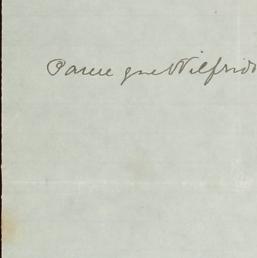 Parece que Wilfrido